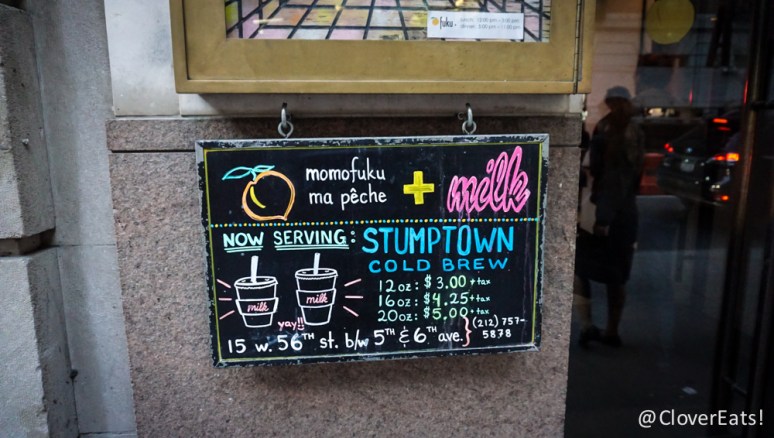 fuku.
momofuku
ma pêche + milk
NOW SERVING: STUMPTOWN
COLD BREW
12oz: $3.00 +tax
16oz: $4.25 +tax
20oz: $5.00 +tax
milk milk
yay!!
15 w. 56TH st. b/w 5TH & 6TH ave. } (212) 757-
5878
@CloverEats!